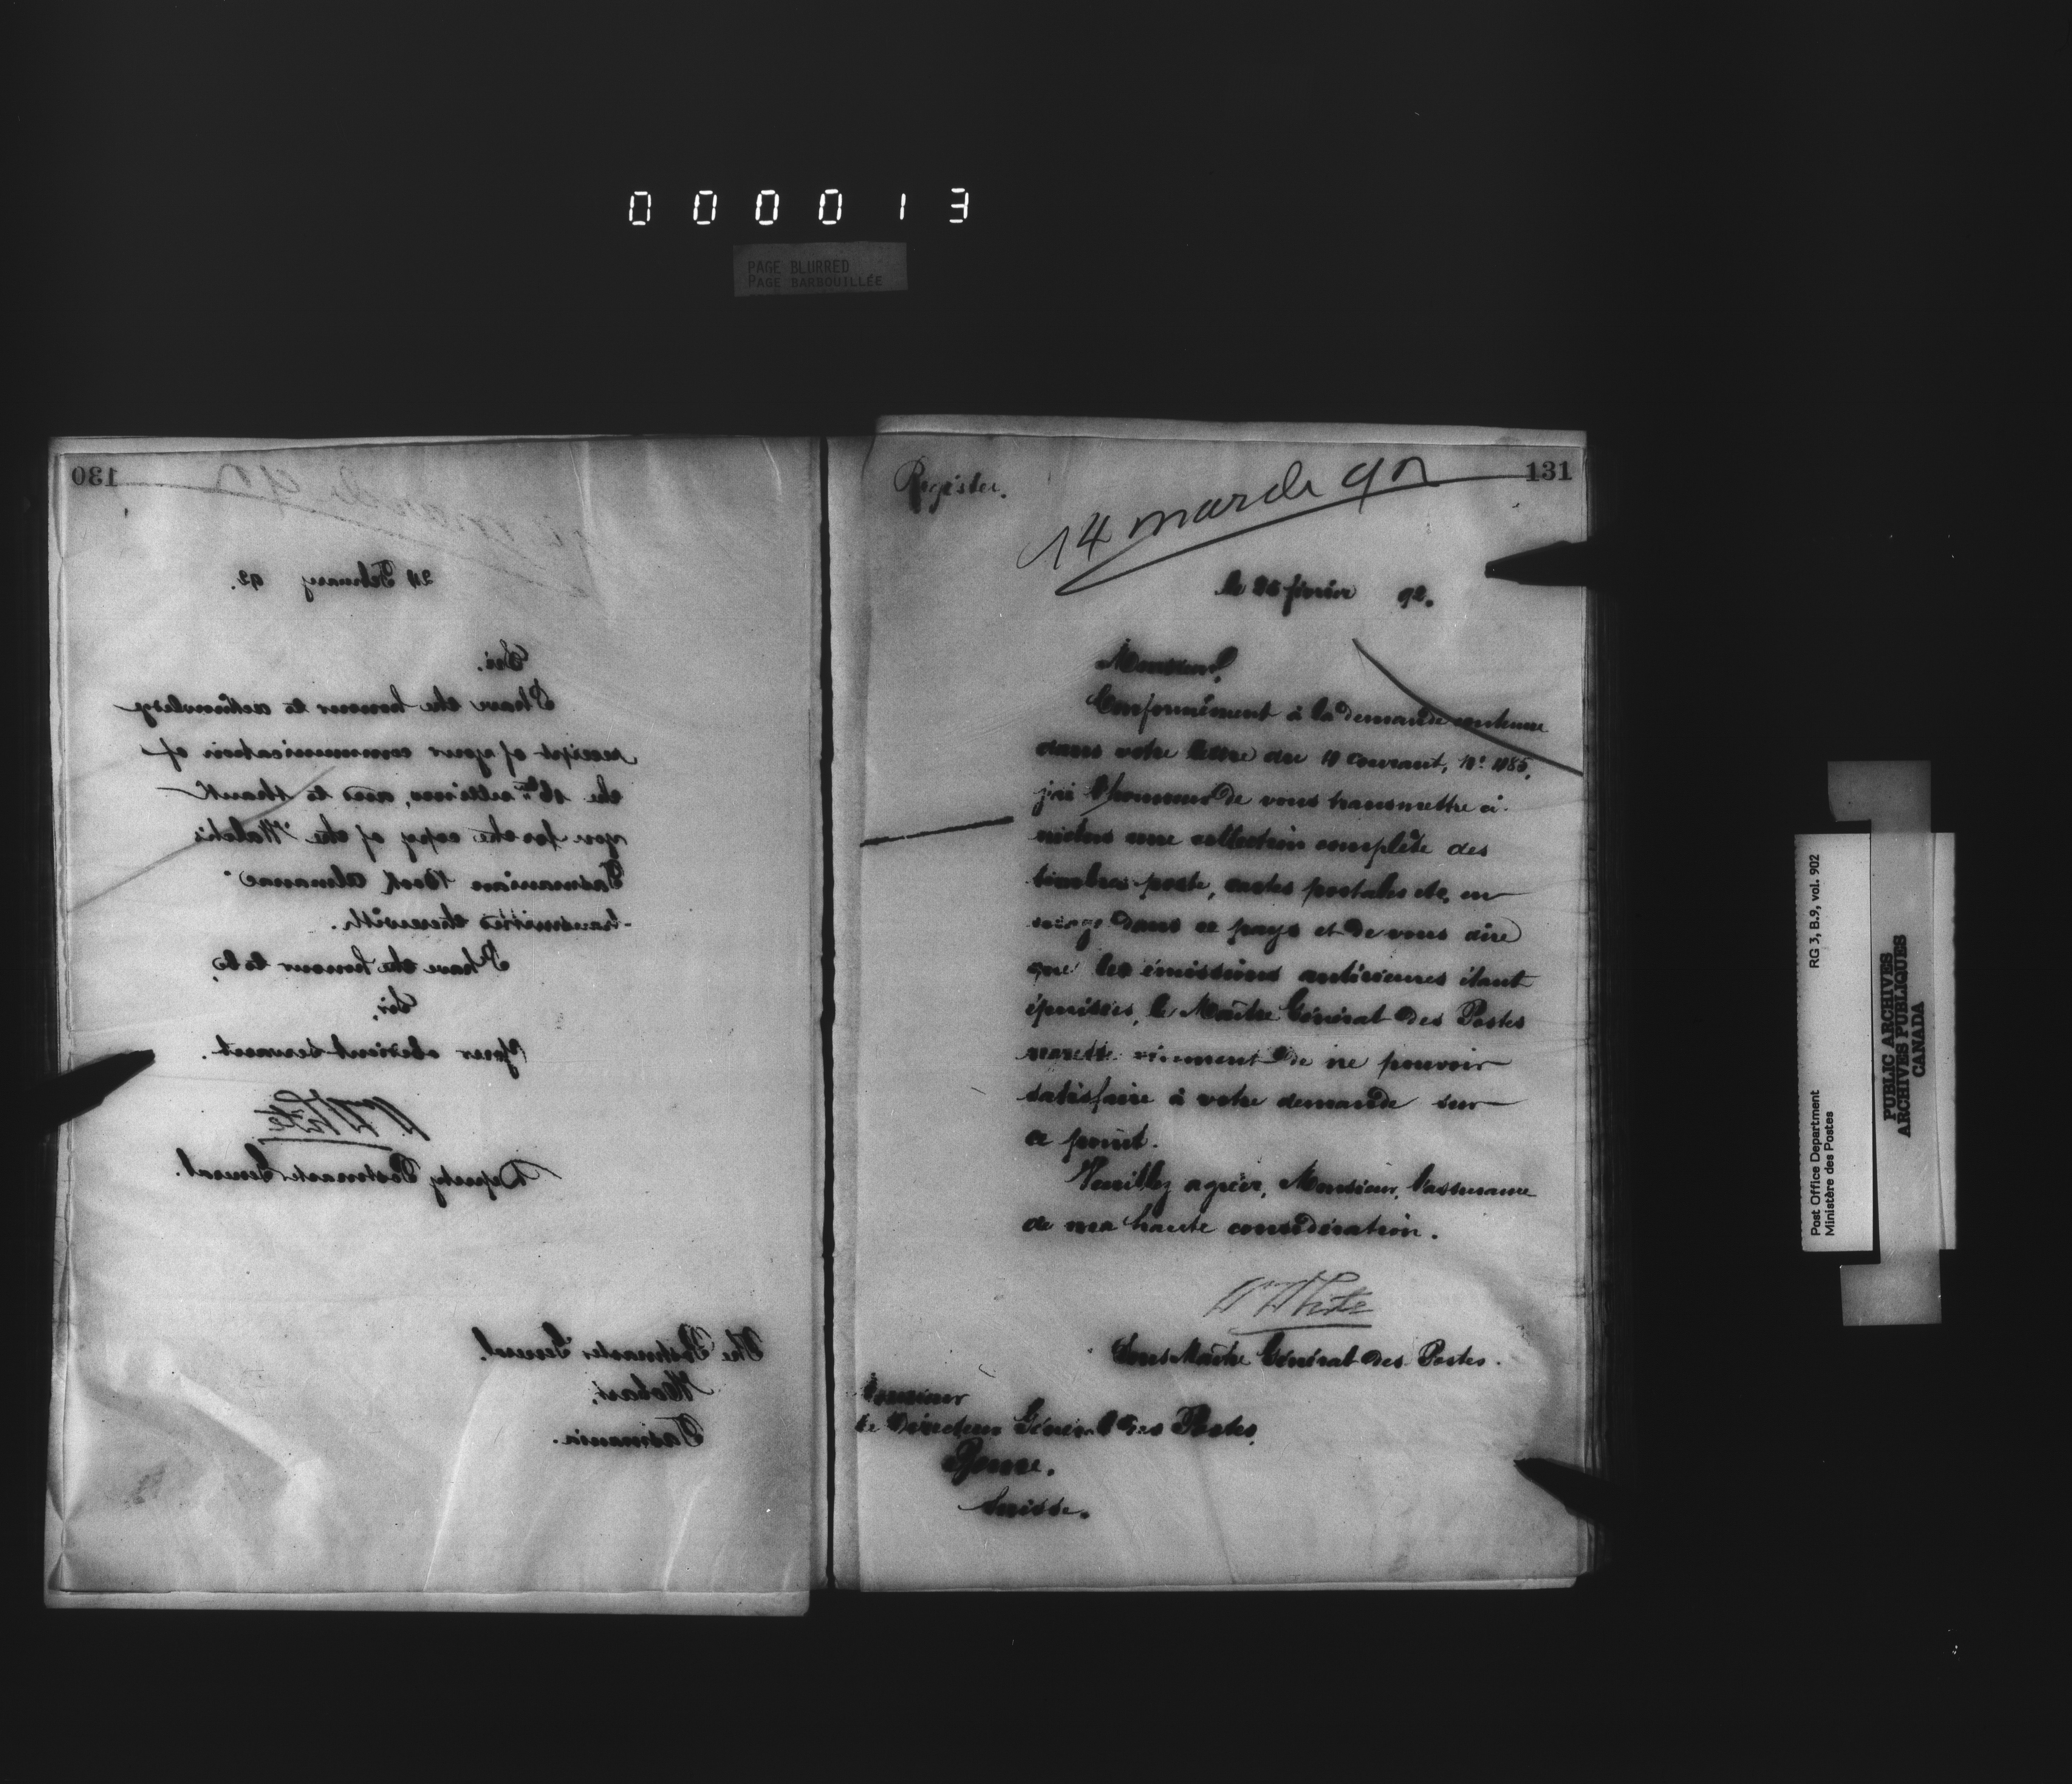 000013
PAGE BLURRED
PAGE BARBOUILLÉE
130
24 February 92.
Sir.
I have the honour to acknowledge
receipt of your communication of
the 16th ultimo, and to thank
you for the copy of the "Walch's
Tasmanian Book Almanac"
transmitted therewith.
I have the honour to be,
Sir,
Your obedient servant.
W White
Deputy Postmaster General.
The Postmaster General.
Hobart,
Tasmania.
131
Register.
14 march 92
le 26 février 92.
Monsieur,
Conformément à la demande contenue
dans votre lettre du 10 courant, No.
j'ai l'honneur de vous transmettre ci-
inclus une collection complète des
timbres-poste, cartes postales etc, en
usage dans ce pays et de vous dire
que les émissions antérieures étant
épuisées, le Maître Général des Postes
regrette vivement de ne pouvoir
satisfaire à votre demande sur
ce point.
Veuillez agréer, Monsieur, l'assurance
de ma haute considération.
W White
Sous Maître Général des Postes.
Monsieur
le Directeur Général des Postes,
Berne.
Suisse.
Post Office Department
Ministère des Postes
RG 3, B.9, vol. 902
PUBLIC ARCHIVES
ARCHIVES PUBLIQUES
CANADA